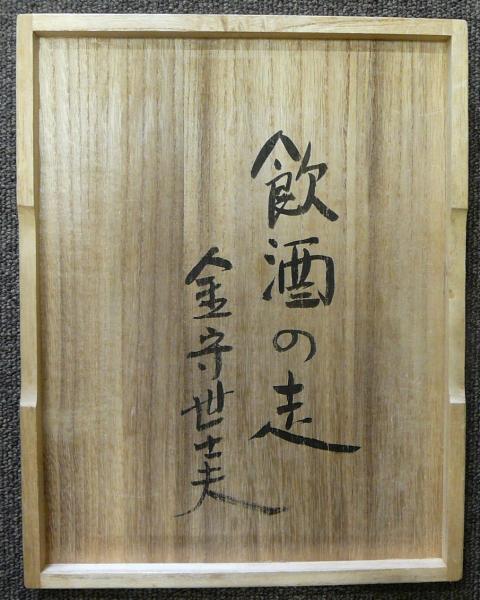 飲酒の走
金守世士夫